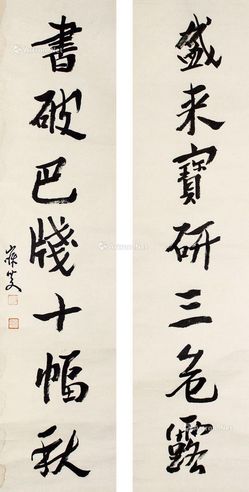 盛来寶研三危露
書破巴牋十幅秋